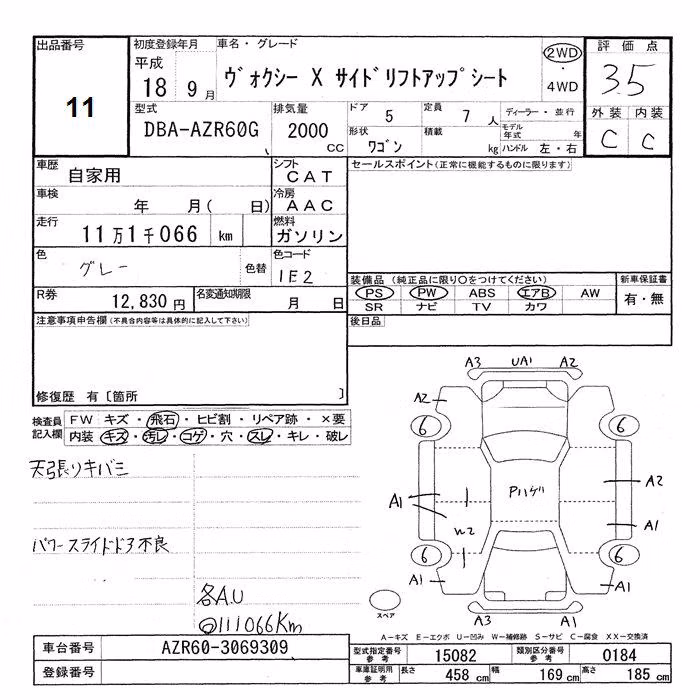 出品番号 初度登録年月 車名・グレード 2WD 評価点
11 平成 18 9月 ヴォクシー X サイドリフトアップシート ・ 4WD 3.5
型式 排気量 ドア 5 定員 7人 ディーラー・並行 外装 内装
DBA-AZR60G 2000 CC 形状 ワゴン 積載 kg モデル年式 年 ハンドル 左・右 C C
車歴 自家用 シフト CAT セールスポイント(正常に機能するものに限ります)
車検 年 月( 日) 冷房 AAC
走行 11万1千066 km 燃料 ガソリン
色 グレー 色替 色コード 1E2
装備品(純正品に限り○をつけてください) 新車保証書
R券 12,830円 名変通知期限 月 日 PS PW ABS エアB AW 有・無
SR ナビ TV カワ
注意事項申告欄(不具合内容等は具体的に記入して下さい) 後日品
修復歴 有〔箇所 〕
検査員記入欄 FW キズ・飛石・ヒビ割・リペア跡・×要
内装 キズ・汚レ・コゲ・穴・スレ・キレ・破レ
天張リキバミ
パワースライドドア不良
各A.U
◎111066Km
A3 UA1 A2
A2
6 6
Pハゲ
A1 A2
W2 A1
6 6
A1 A1
スペア
A3 A1
A-キズ E-エクボ U-凹み W-補修跡 S-サビ C-腐食 XX-交換済
車台番号 AZR60-3069309 型式指定番号 参考 15082 類別区分番号 参考 0184
登録番号 車庫証明用 参考 長さ 458 cm 幅 169 cm 高さ 185 cm